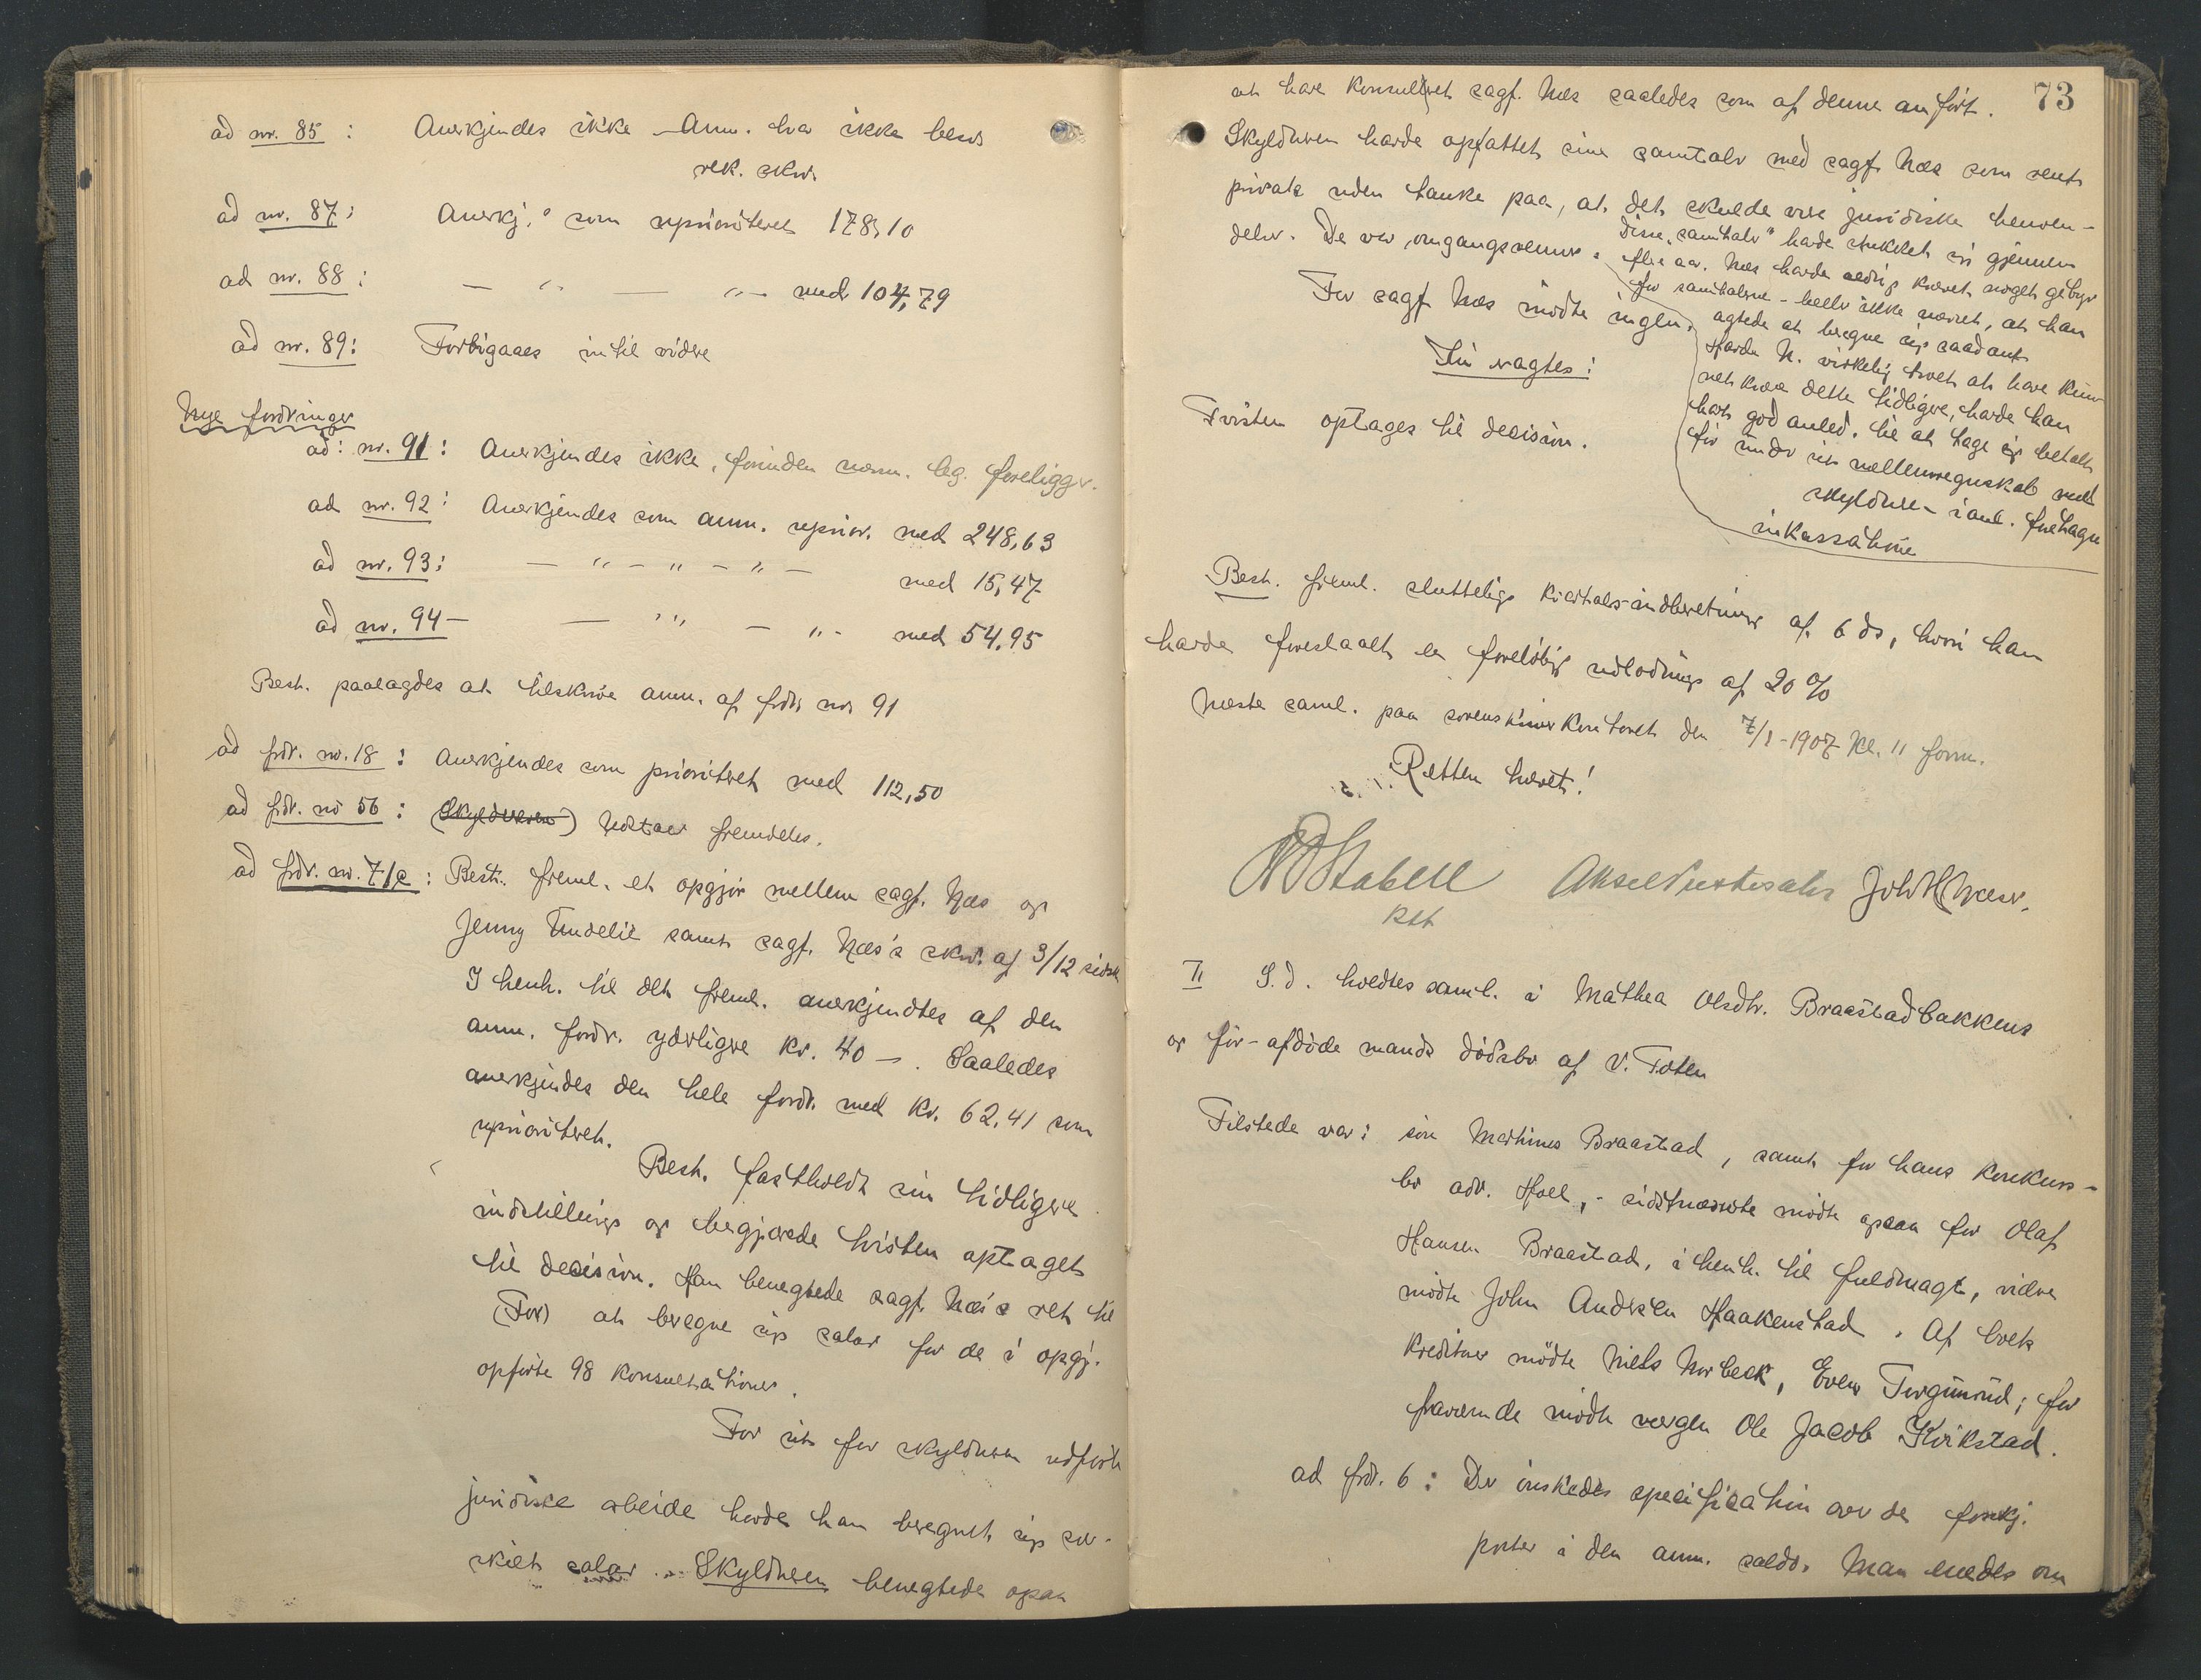 ad nr. 85 : Anerkjendes ikke – Anm. har ikke besv
rek. skr.
ad nr. 87 : Anerkj. som uprioriteret 178,10
ad nr. 88 : — " — " — med 104,79
ad nr. 89 : Forbigaaes intil videre
Nye fordringer
ad : nr. 91 : Anerkjendes ikke, forinden nærm. leg. foreligger.
ad nr. 92 : Anerkjendes som anm. uprior. med 248,63
ad nr. 93 : — " — " — " — med 15,47
ad nr. 94 — — " — " - med 54,95
Best. paalagdes at tilskrive anm. af fodr nr 91
ad fdr. nr. 18 : Anerkjendes som prioriteret med 112,50
ad fdr. no 56 : (Skyldneren) Udstaar fremdeles.
ad fdr. nr. 71a : Best. freml. et opgjør mellem sagf. Næs og
Jenny Tindelie samt sagf. Næs's skr. af 3/12 sidstl
I henh. til det freml. anerkjendtes af den
anm. fordr. yderligere kr. 40 –. Saaledes
anerkjendes den hele fordr. med kr. 62,41 som
uprioriteret.
Best. fastholdt sin tidligere
indstilling og begjærede tvisten optaget
til decision. Han benegtede sagf. Næs's ret til
(For) at beregne sig salar for de i opgj.
opførte 98 konsultationer.
For sit for skyldneren udførte
juridiske arbeide havde han beregnet sig sær-
skilt salar. Skyldneren benegtede ogsaa
73
at have konsulteret sagf. Næs saaledes som af denne anført.
Skyldneren havde opfattet sine samtaler med sagf. Næs som rent
private uden tanke paa, at det skulde være juridiske henven-
delser. De var omgangsvenner.
Disse "samtaler" havde strukket sig gjennem
flere aar. Næs havde aldrig krævet noget gebyr
for samtalerne – heller ikke nævnt, at han
agtede at beregne sig saadant
Havde N. virkelig troet at have kun-
net kræve dette tidligere, havde han
havt god anled. til at tage sig betalt
før under sit mellemregnskab med
skyldneren i anl. foretagne
inkassationer
For sagf Næs mødte ingen.
Sin vagtes :
Tvisten optages til decision.
Best. freml. sluttelig kvartalsindberetning af 6 ds, hvori han
havde foreslaaet en foreløbig udlodning af 20 %
Næste saml. paa sorenskriverkontoret den 7/1-1907 kl. 11 form.
Retten hævet!
Stabell
kst
Joh H Næser.
II S.d. holdtes saml. i Mathea Olsdtr. Braastadbakkens
og før-afdøde mands dødsbo af V. Toten
Tilstede var : søn Martinus Braastad, samt for hans konkurs-
bo adv. Hoel, - sidstnævnte mødte ogsaa for Olaf
Hansen Braastad, i henh. til fuldmagt, videre
mødte John Andersen Haakenstad. Af boets
kreditorer mødte Niels Norbeck, Even ; for
fraværende mødte vergen Ole Jacob Kvikstad.
ad fdr. 6 : Der ønskedes specifikation over de forskj.
poster i den anm. saldo. Man enedes om